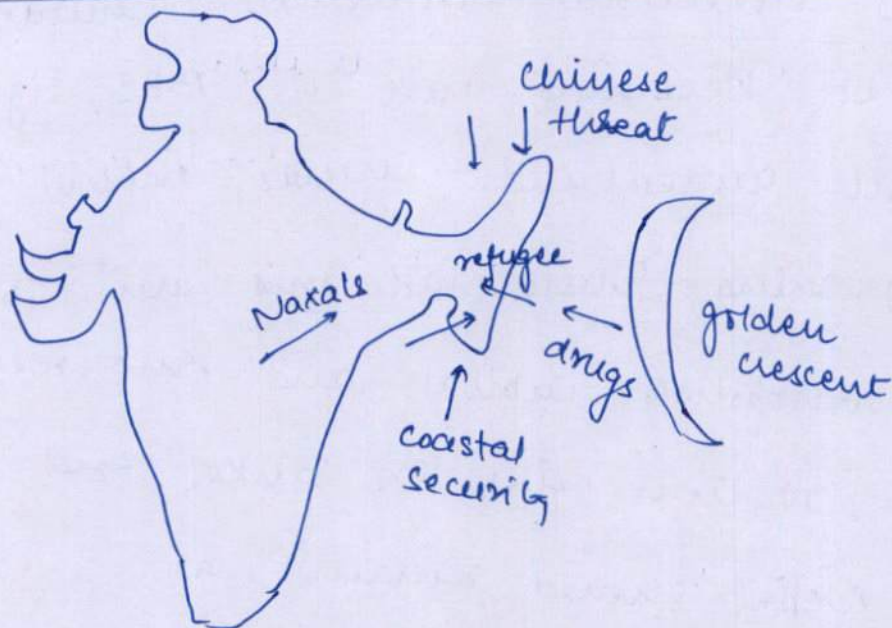 Chinese
threat
refugee
Naxals
drugs
golden
crescent
Coastal
Security